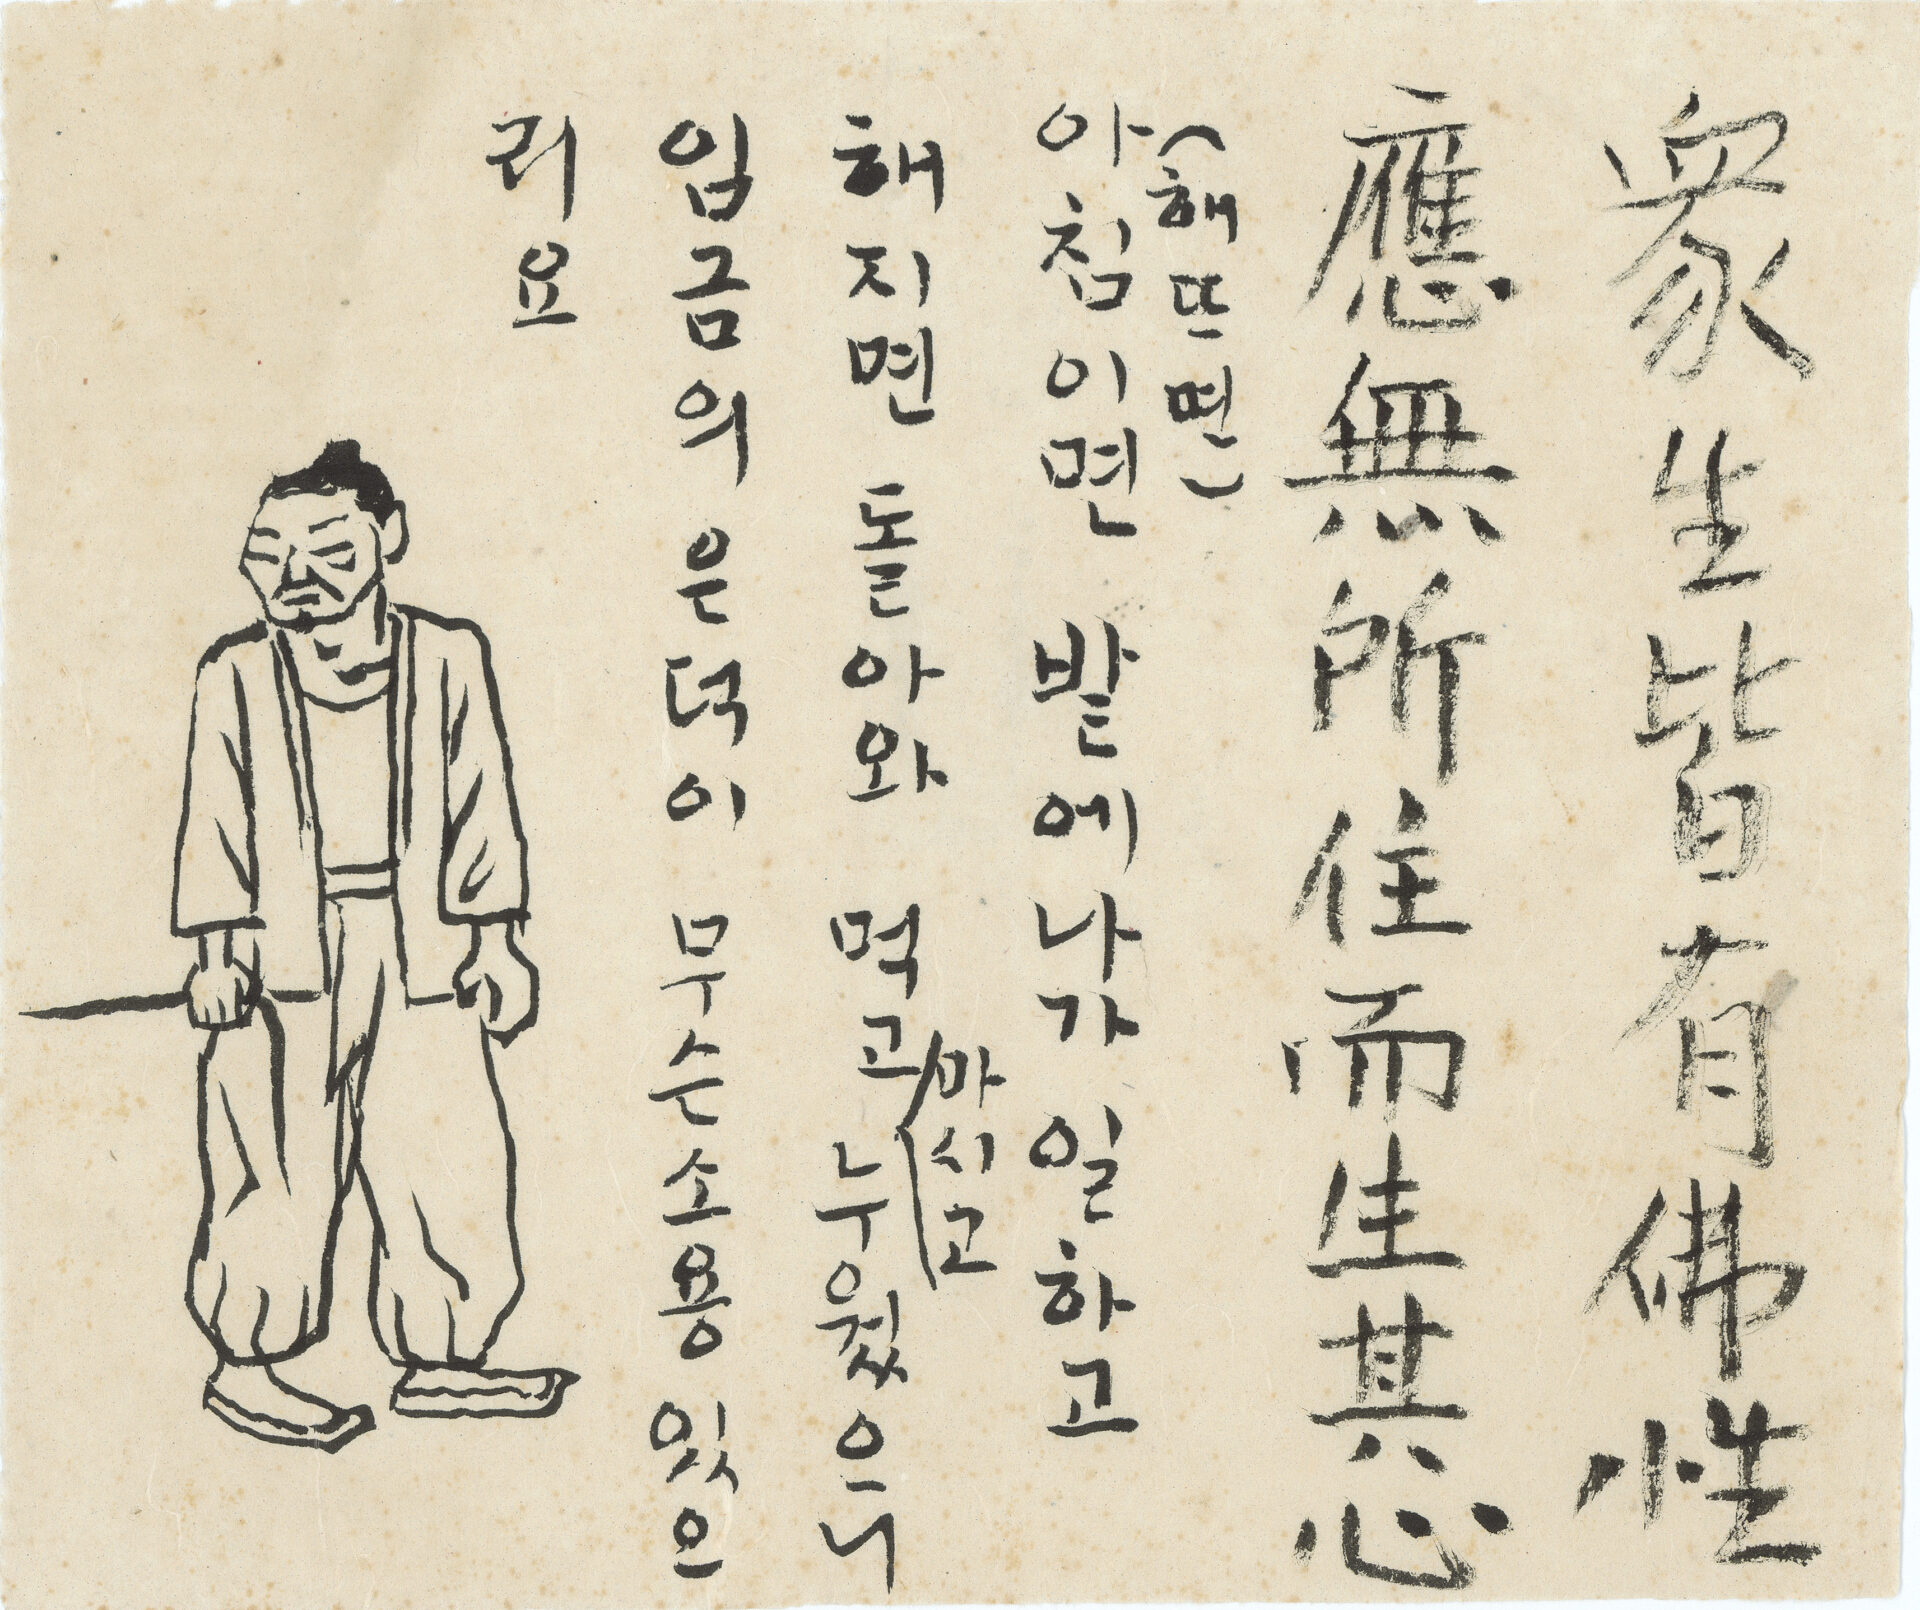 衆生皆有佛性
應無所住而生其心
(해뜨면)
아침이면 밭에 나가 일하고
해지면 돌아와 먹고 마시고 누웠으니
임금의 은덕이 무슨 소용 있으
리요